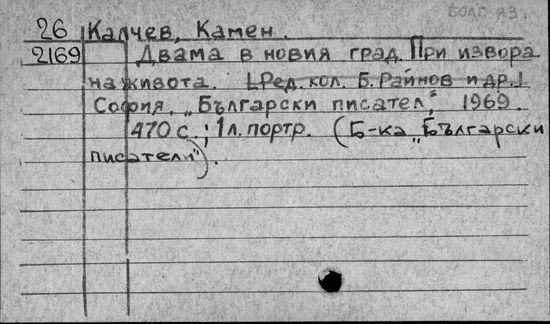 БОЛГ. ЯЗ.
26 Калчев, Камен.
2169 Двама в новия град. При извора
на живота. [Ред. кол. Б. Райнов и др.]
София, „Български писател“, 1969.
470 с.; 1 л. портр. (Б-ка „Български
писатели“).